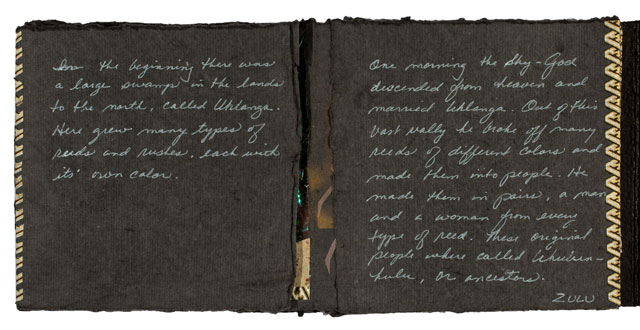 In the beginning there was
a large swamp in the lands
to the north, called Uhlanga.
Here grew many types of
reeds and rushes, each with
its' own color.
One morning the Sky-God
descended from heaven and
married Uhlanga. Out of this
vast vally he broke off many
reeds of different colors and
made them into people. He
made them in pairs, a man
and a woman from every
type of reed. These original
people where called
or ancestors.
ZULU